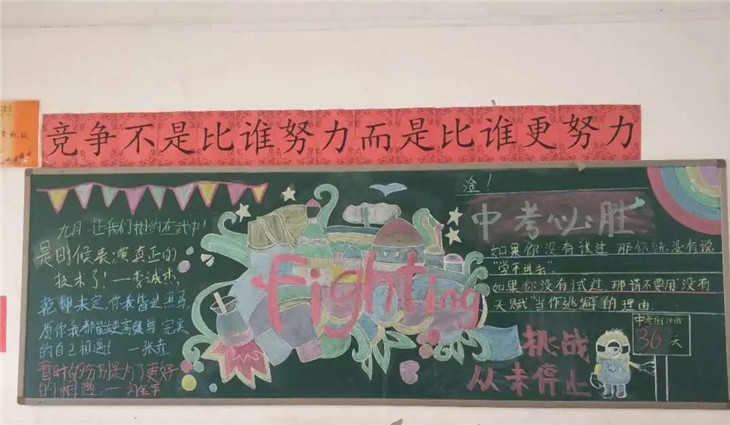 竞争不是比谁努力而是比谁更努力
九月,让我们相约在武中!
是时候表演真正的
技术了!—李诚杰
乾坤未定,你我皆是黑马
愿你我都能逆高集与完美
的自己相遇! —张
暂时的分别是为了更好
的相遇
Fighting
淦!
中考必胜
如果你没有试过 那你就没有说
"学不进去"
如果你没有试过,那请不要用"没有
天赋"当作逃避的理由
挑战
从未停止
中考倒计时
36天